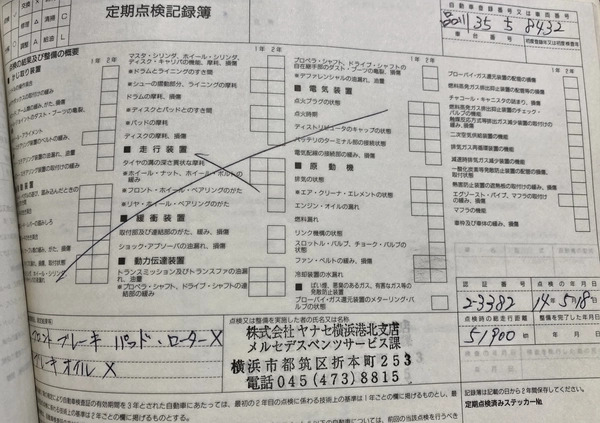 定期点検記録簿
自動車登録番号又は車両番号
品川 35 ら 8432
車台番号
点検の結果及び整備の概要
1年 2年
マスタ・シリンダ、ホイール・シリンダ、
ディスク・キャリパの機能、摩耗、損傷
※ドラムとライニングのすき間
※シューの摺動部分、ライニングの摩耗
ドラムの摩耗、損傷
※ディスクとパッドとのすき間
※パッドの摩耗
ディスクの摩耗、損傷
■ 走行装置
タイヤの溝の深さ異状な摩耗
※ホイール・ナット、ホイール・ボルトの
緩み
※フロント・ホイール・ベアリングのがた
※リヤ・ホイール・ベアリングのがた
■ 緩衝装置
取付部及び連結部のがた、緩み、損傷
ショック・アブソーバの油漏れ、損傷
■ 動力伝達装置
トランスミッション及びトランスファの油漏
れ、油量
※プロペラ・シャフト、ドライブ・シャフトの連
結部の緩み
1年 2年
プロペラ・シャフト、ドライブ・シャフトの
自在継手部のダスト・ブーツの亀裂、損傷
※デファレンシャルの油漏れ、油量
■ 電気装置
点火プラグの状態
点火時期
ディストリビュータのキャップの状態
バッテリのターミナル部の接続状態
電気配線の接続部の緩み、損傷
■ 原動機
排気の状態
※エア・クリーナ・エレメントの状態
エンジン・オイルの漏れ
燃料漏れ
リンク機構の状態
スロットル・バルブ、チョーク・バルブの
状態
ファン・ベルトの緩み、損傷
冷却装置の水漏れ
■ ばい煙、悪臭のあるガス、有害なガス等の
発散防止装置
ブローバイ・ガス還元装置のメターリング・バル
ブの状態
1年 2年
ブローバイ・ガス還元装置の配管の損傷
燃料蒸発ガス排出抑止装置の配管等の損傷
チャコール・キャニスタの詰まり、損傷
燃料蒸発ガス排出抑止装置のチェック・
バルブの機能
触媒反応方式等排出ガス減少装置の取付けの
緩み、損傷
二次空気供給装置の機能
排気ガス再循環装置の機能
減速時排気ガス減少装置の機能
一酸化炭素等発散防止装置の配管の損傷、
取付状態
熱害防止装置の遮熱板の緩み、損傷
エグゾースト・パイプ、マフラの取付けの
緩み、損傷
マフラの機能
車枠及び車体の緩み、損傷
認証番号
点検の年月日
2-3382
14年 5月18日
点検時の総走行距離
整備を完了した年月日
51900 km
年 月 日
フロント ブレーキ パッド・ローター X
ブレーキオイル X
点検又は整備を実施した者の氏名又は名称
株式会社ヤナセ横浜港北支店
メルセデスベンツサービス課
横浜市都筑区折本町253
電話 045(473)8815
記録簿は記載の日から2年間保存してください。
定期点検済みステッカーNo.